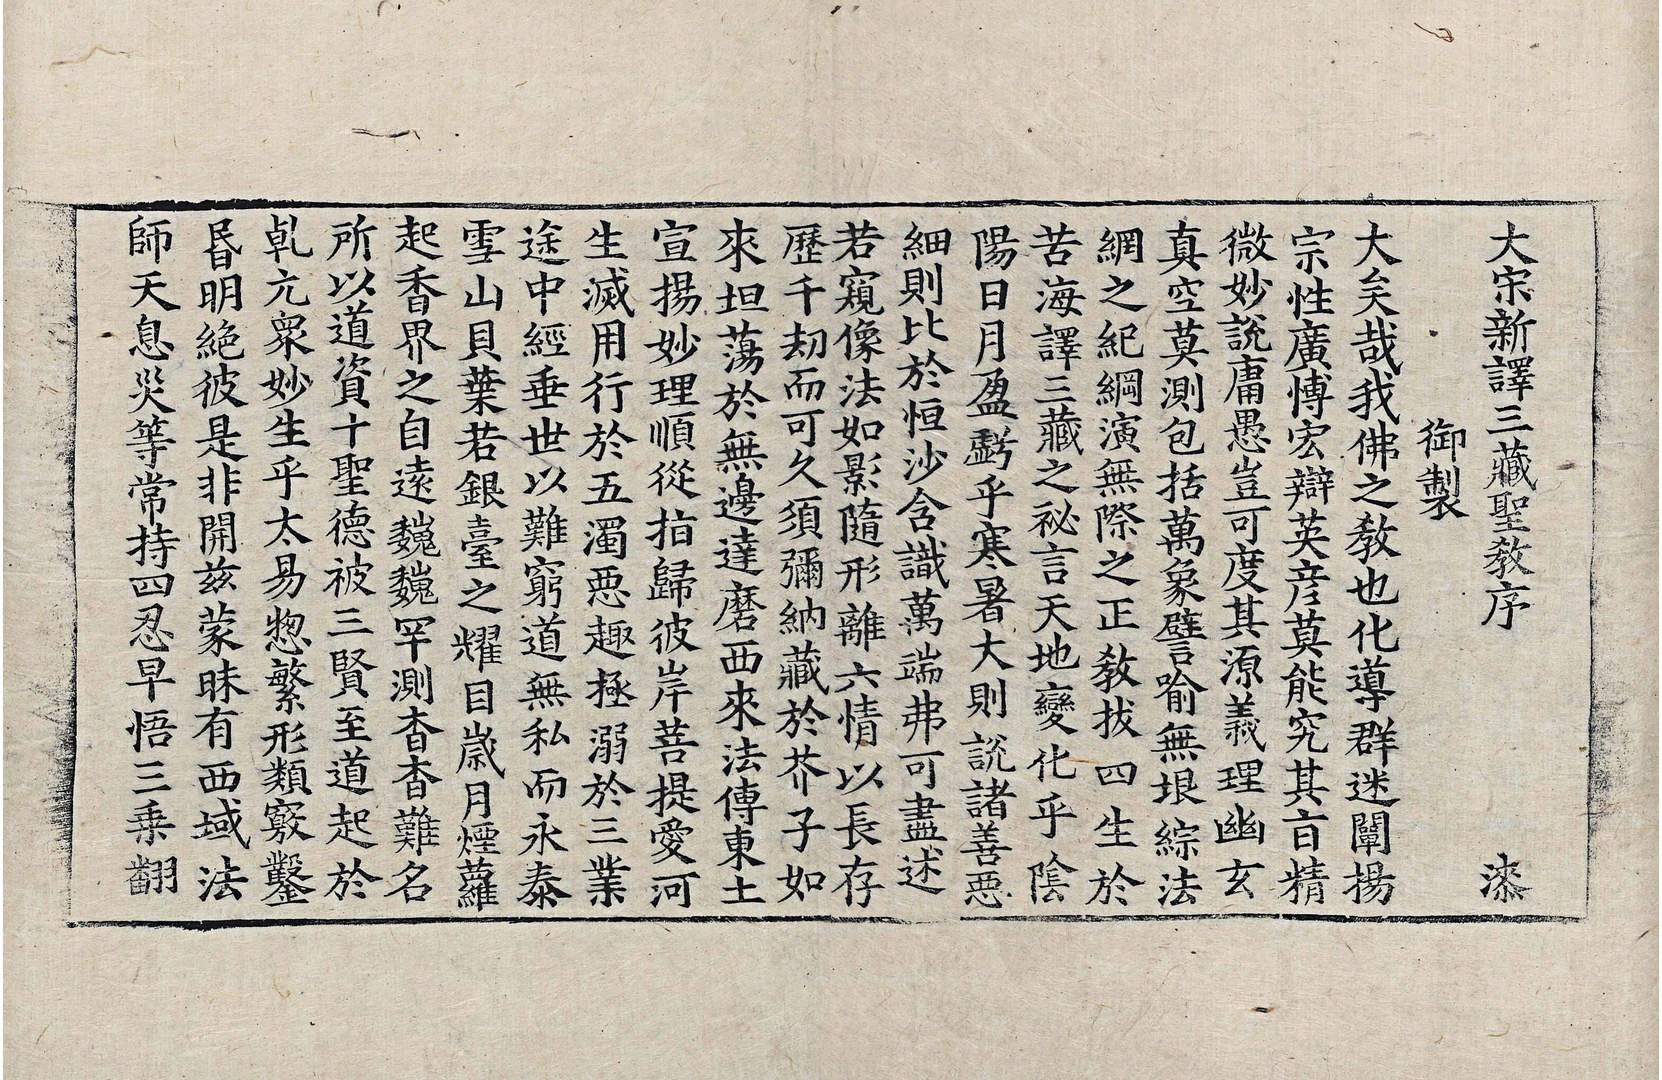 大宋新譯三藏聖教序 漆
御製
大矣哉我佛之教也化導群迷闡揚
宗性廣愽宏辯英彦莫能究其㫖精
微妙說庸愚豈可度其源義理幽玄
真空莫測包括萬象譬喻無垠綜法
網之紀綱演無際之正教拔四生於
苦海譯三藏之祕言天地變化乎陰
陽日月盈虧乎寒暑大則說諸善惡
細則比於恒沙含識萬端弗可盡述
若窺像法如影隨形離六情以長存
歷千劫而可久須彌納藏於芥子如
來坦蕩於無邊達磨西來法傳東土
宣揚妙理順從指歸彼岸菩提愛河
生滅用行於五濁惡趣拯溺於三業
途中經垂世以難窮道無私而永泰
雪山貝葉若銀臺之耀目歲月煙蘿
起香界之自遠巍巍罕測杳杳難名
所以道資十聖德被三賢至道起於
乹元衆妙生乎太易惣繁形類竅鑿
昬明絕彼是非開兹蒙昧有西域法
師天息災等常持四忍早悟三乗翻